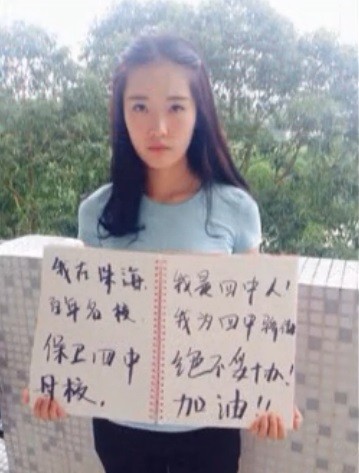 我在珠海.
百年名校.
保卫四中
母校.
我是四中人!
我为四中骄傲
绝不妥协!
加油!!